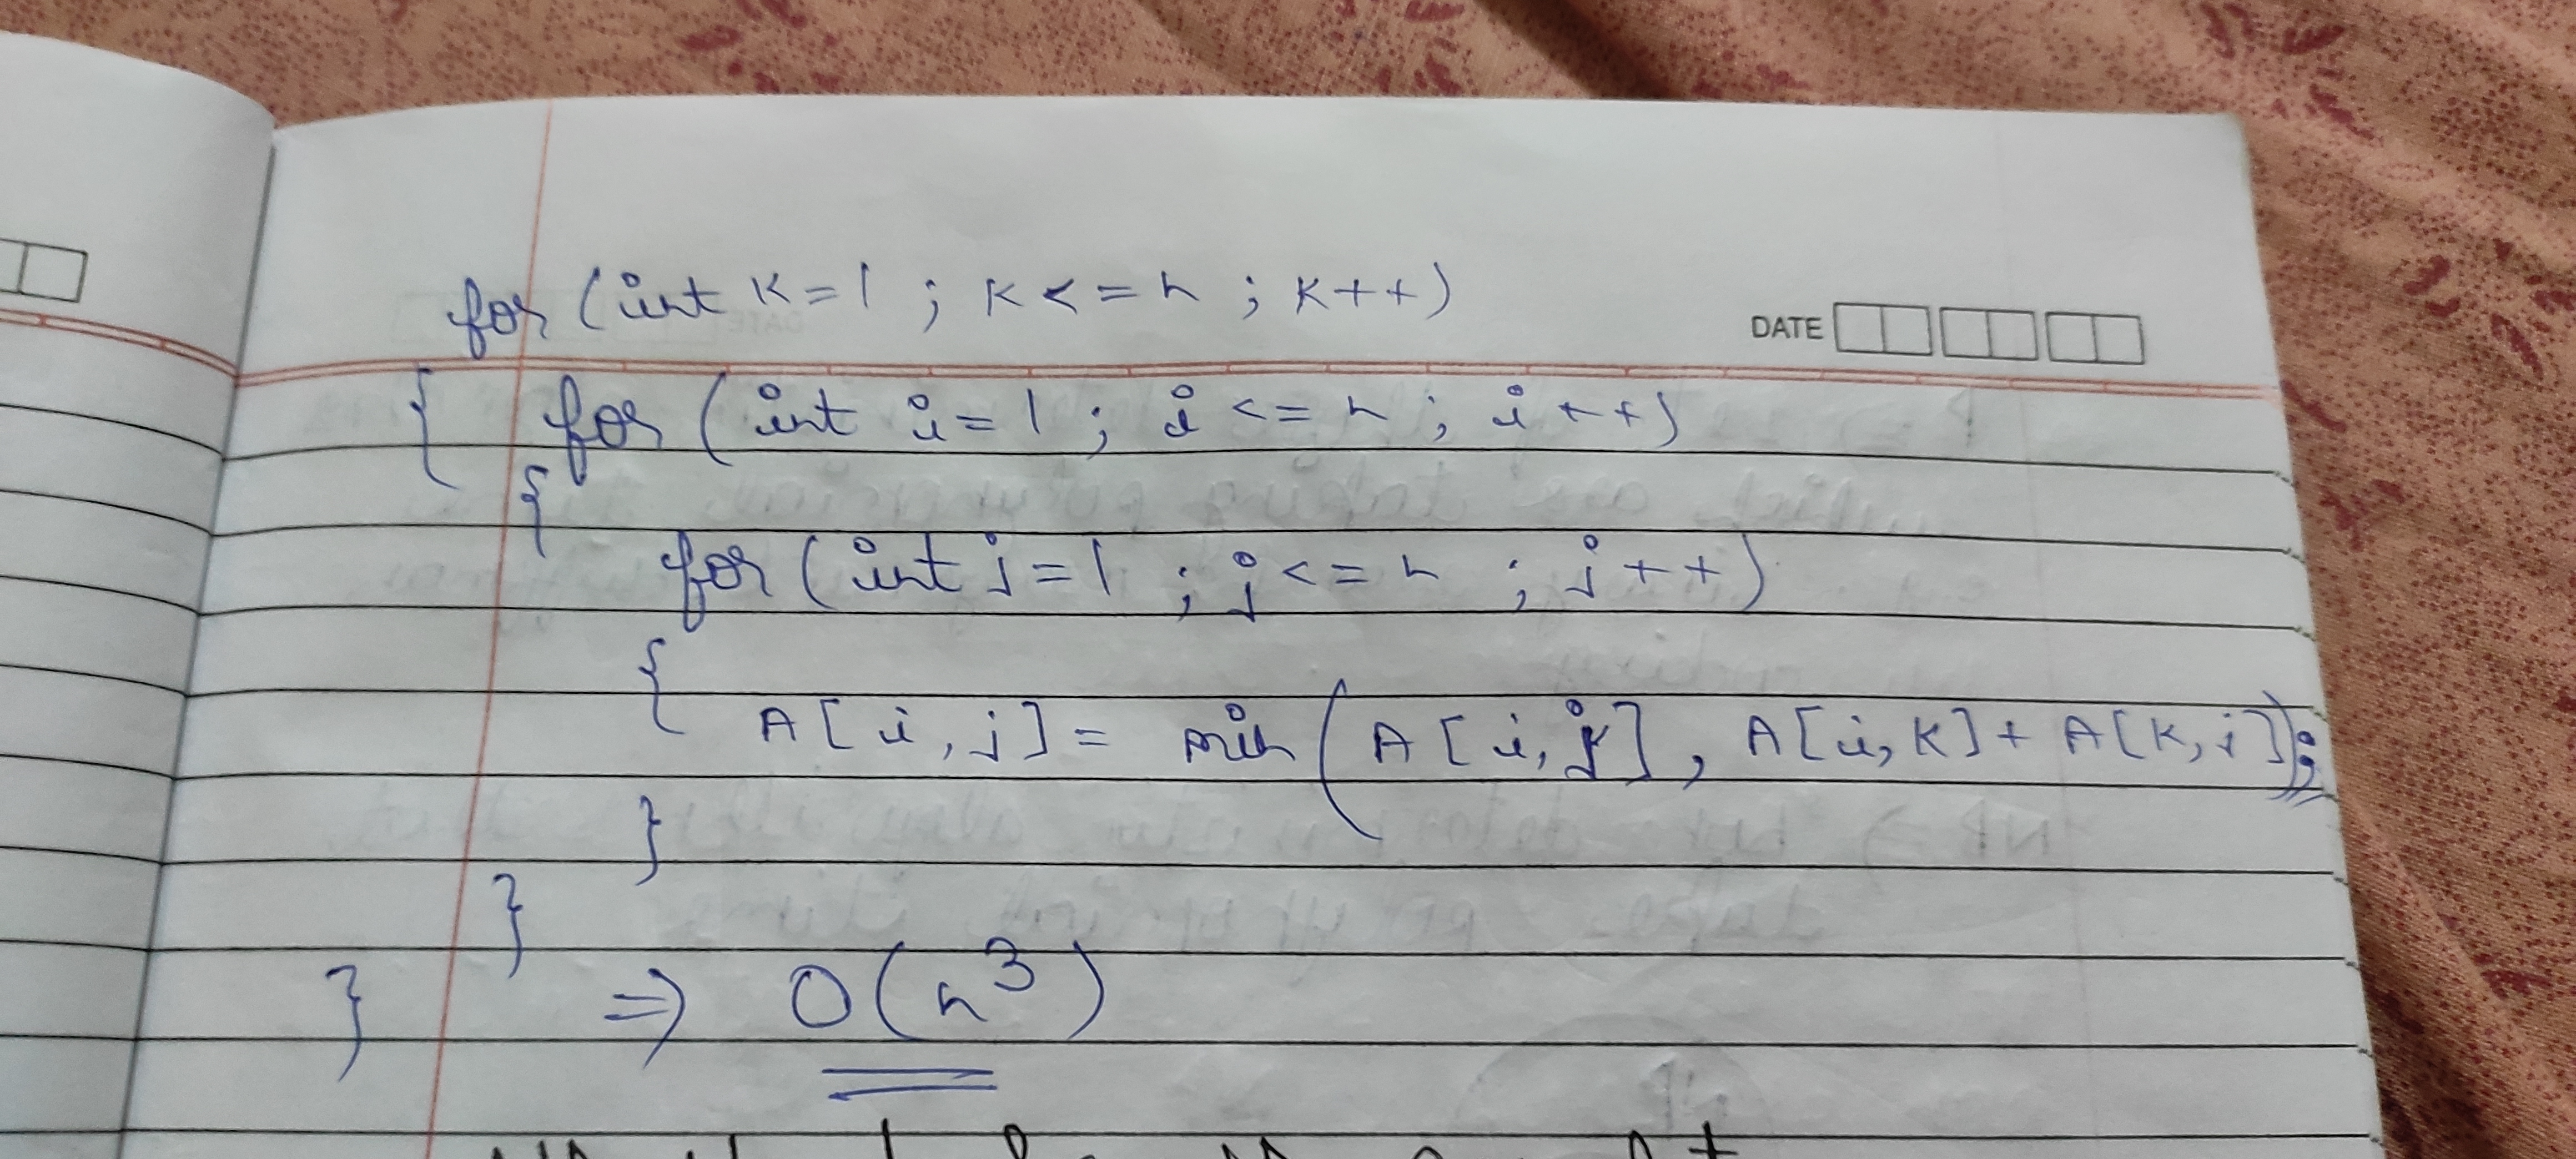 DATE
for (int k=1 ; k<=n ; k++)
{ for (int i=1 ; i<=n ; i++)
{ for (int j=1 ; j<=n ; j++)
{ A[i,j] = min (A[i,j], A[i,k]+A[k,j]);
}
}
} ⇒ O(n³)